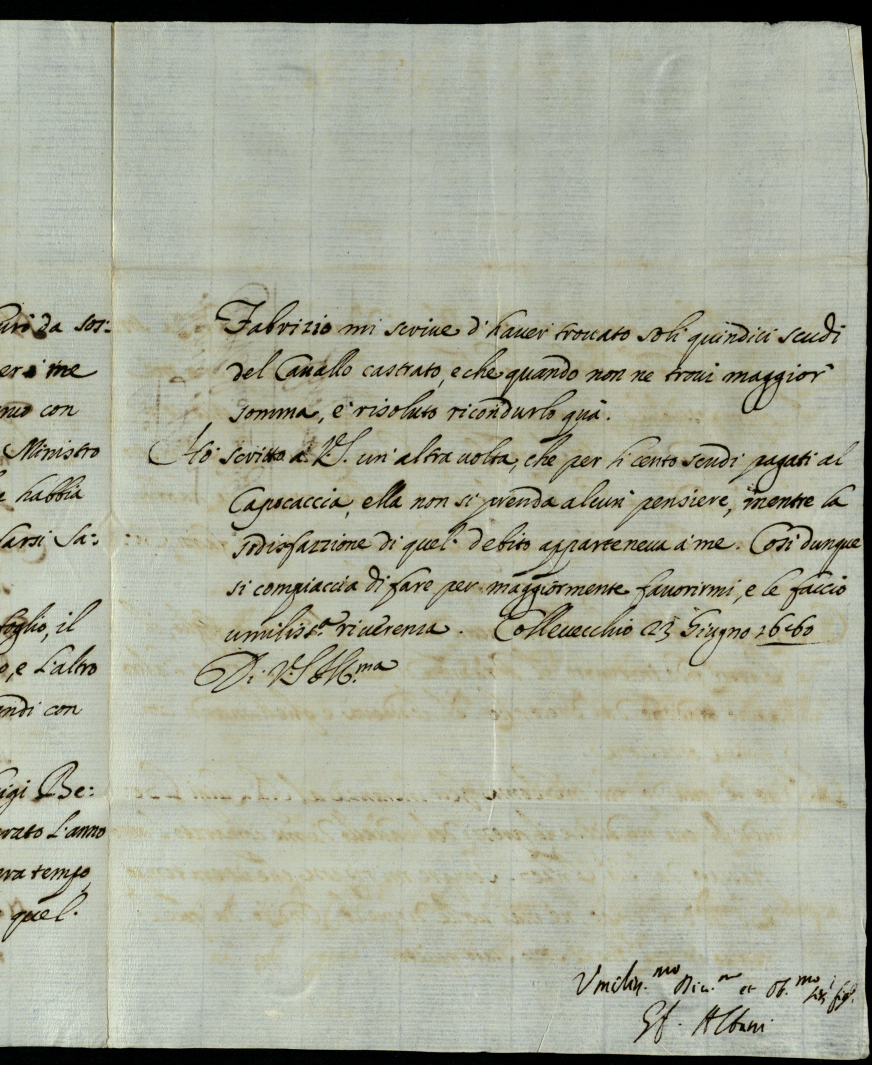 da sor:
me
con
Ministro
habbia
farsi Sa:
foglio, il
e L'altro
con
Be:
L'anno
tempo
quel.
Fabrizio mi scriue d'hauer trouato soli quindici scudi
del Cauallo castrato, e che quando non ne troui maggior
somma, e' risoluto ricondurlo quà.
Hò scritto à V.S. un'altra uolta, che per li cento scudi pagati al
Capocaccia, ella non si prenda alcun pensiere, mentre la
sodisfazzione di quel debito apparteneua à me. Così dunque
si compiaccia di fare per maggiormente fauorirmi, e le faccio
umiliss.ª riuerenza. Colleuecchio 23 Giugno 1660
Di V.S. Ill.ma
Vmiliss.mo et Ob.mo
Albani